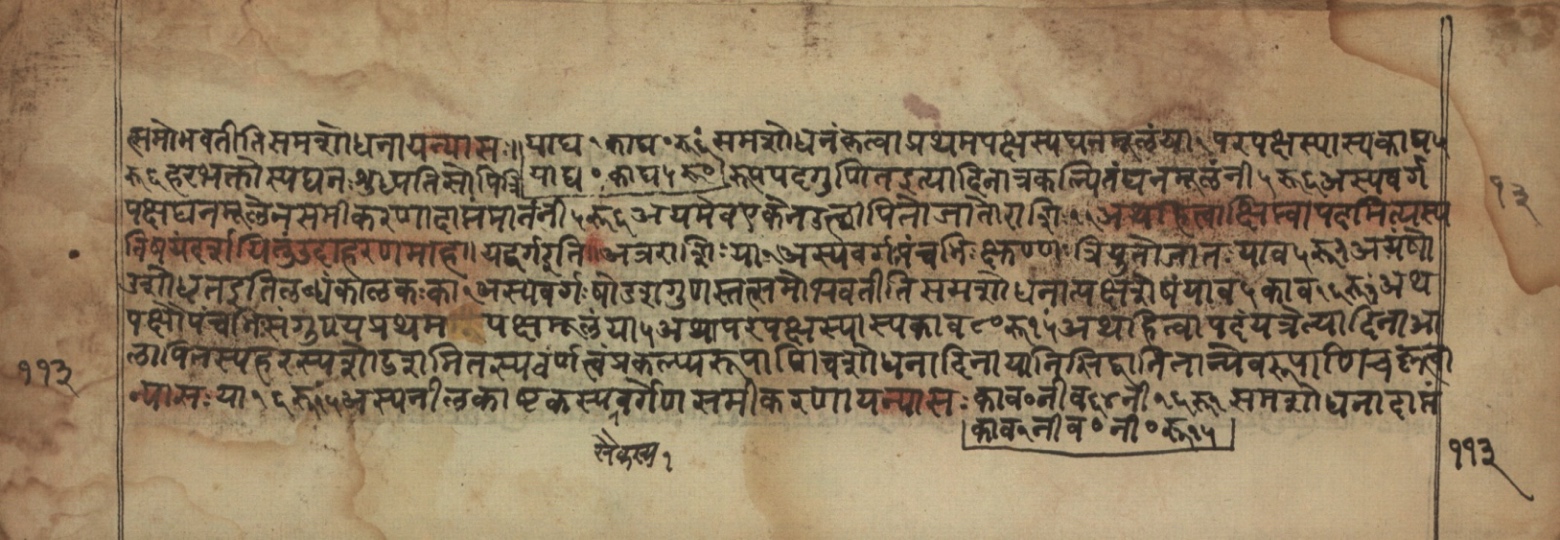 त्समो भवतीति समशोधनाय न्यासः॥ याघ १ काघ ० रू ६ं समशोधनं कृत्वा प्रथमपक्षस्य घनमूलं या १ परपक्षस्यास्य काघ ५
रू ६ हरभक्तोस्य घनः शुध्यति सोपि याघ ० काघ ५ रू ० रूपपदगुणित इत्यादिनात्र कल्पितं घनमूलं नी ५ रू ६ अस्य वर्ग
पक्षघनमूलेन समीकरणादाप्तमानं नी ५ रू ६ अयमेव एकेन उत्थापितो जातो राशिः ११ अथ हित्वा क्षिप्त्वा पदमित्यस्य
विषयं दर्शयितुं उदाहरणमाह॥ यद्वर्ग इति॥ अत्र राशिः या १ अस्य वर्गः पंचभिः क्षुण्णः त्रियुतो जातः याव ५ रू ३ अयं षो
डशोधृत इति लब्धं कालकः का १ अस्य वर्गः षोडशगुणस्तत्समो भवतीति समशोधनात्पक्षशेषं याव ५ काव १६ रू ३ं अथ
पक्षौ पंचभिः संगुण्य प्रथम पक्षमूलं या ५ अथापरपक्षस्यास्य काव ८० रू १५ं अथ हित्वा पदं यत्रेत्यादिना आ
लापितस्य हरस्य षोडशमितस्य वर्णत्वं प्रकल्प्य रूपाणि च शोधनादिना यानि सिद्धानि तान्येव रूपाणि च कृत्वा
न्यासः या १६ रू १५ं अस्य नीलकाष्टकस्य वर्गेण समीकरणाय न्यासः काव ० नीव ६४ नी १६ रू १ समशोधनादाप्तं
काव १ नीव ० नी ० रू १५
११३
११३
१३